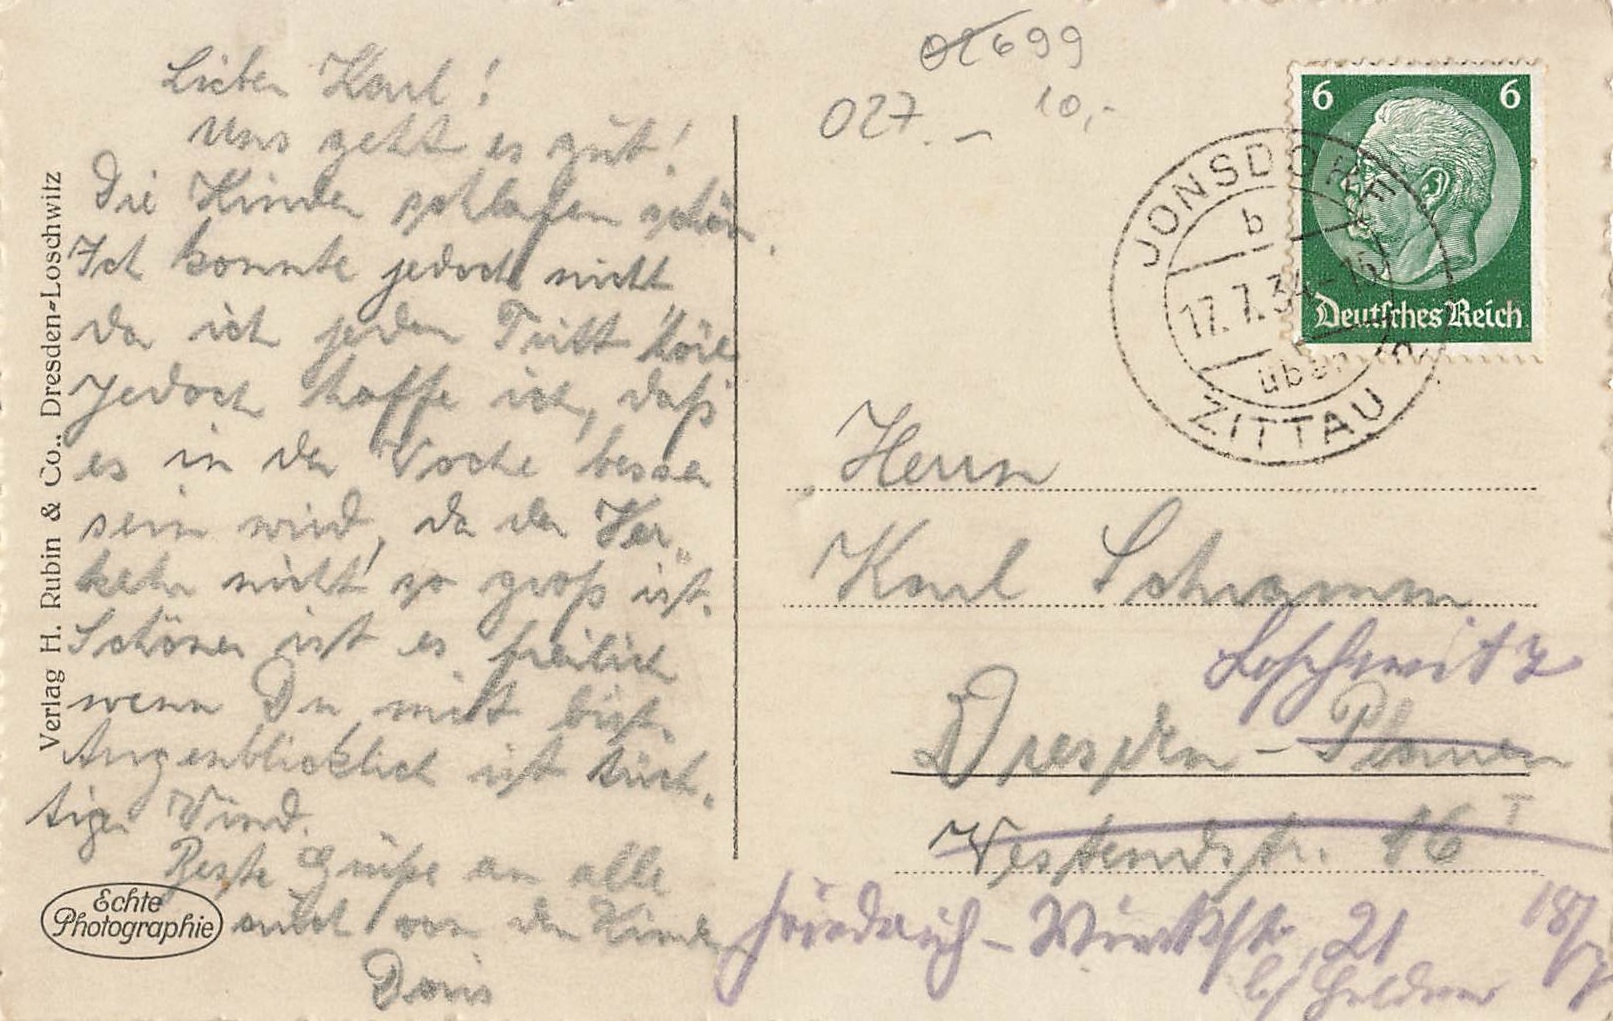 Lieber Karl!
Uns geht es gut!
Die Kinder schlafen schön.
Ich konnte jedoch nicht
da ich jeden Tritt höre
Jedoch hoffe ich, daß
es in der Woche besser
sein wird, da der Ver„
kehr nicht so groß ist.
Schöner ist es freilich
wenn Du mit bist.
Augenblicklich ist tüch„
tiger Wind.
Beste Grüße an alle
auch von den Kinder
Doris
Verlag H. Rubin & Co., Dresden-Loschwitz
Echte
Photographie
699
027.–
10,-
6 6
Deutsches Reich
JONSDORF
b
17.7.34-15
über
ZITTAU
Herrn
Karl Schramm
Loschwitz
Dresden-Plauen
Westendstr. 16 I
Friedrich-Wieckstr. 21
b/ Geldner
18/7